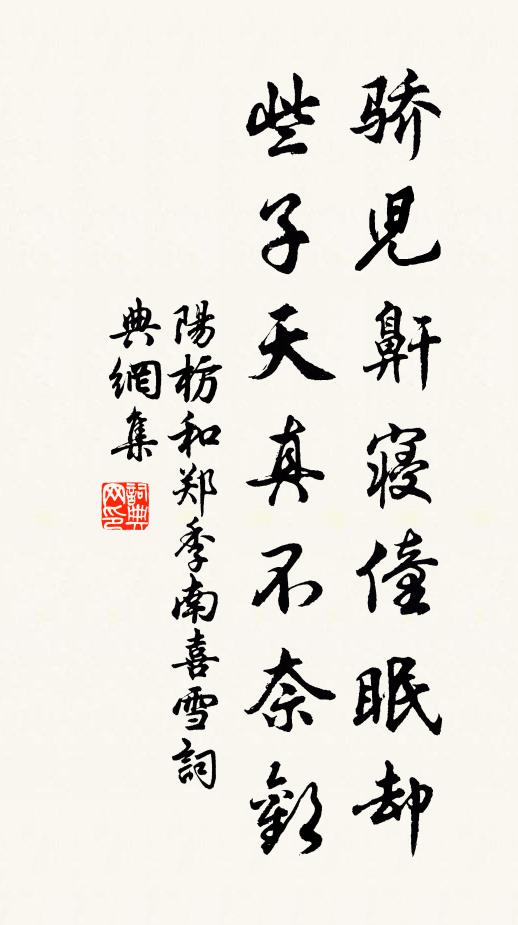 骄兒鼾寝僮眠却
些子天真不奈歡
陽枋和郑季南喜雪詞
典網集
詞典网印